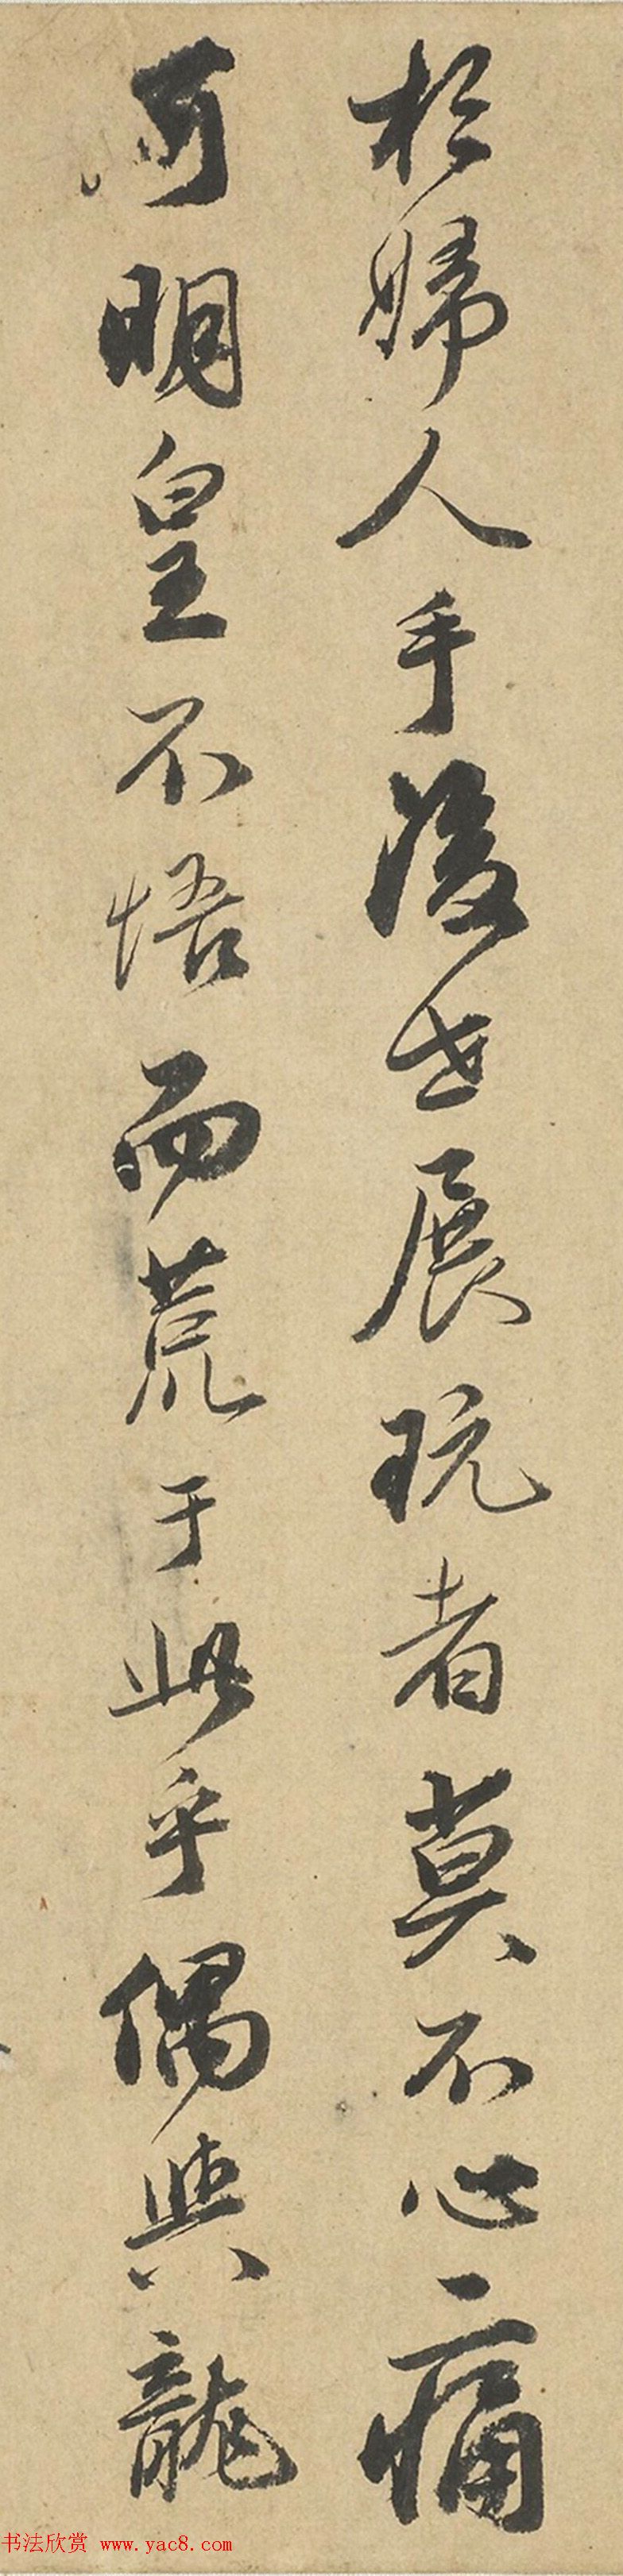 於婦人手後世展玩者莫不心痛
可明皇不悟而荒于此乎偶與龍
书法欣赏 www.yac8.com